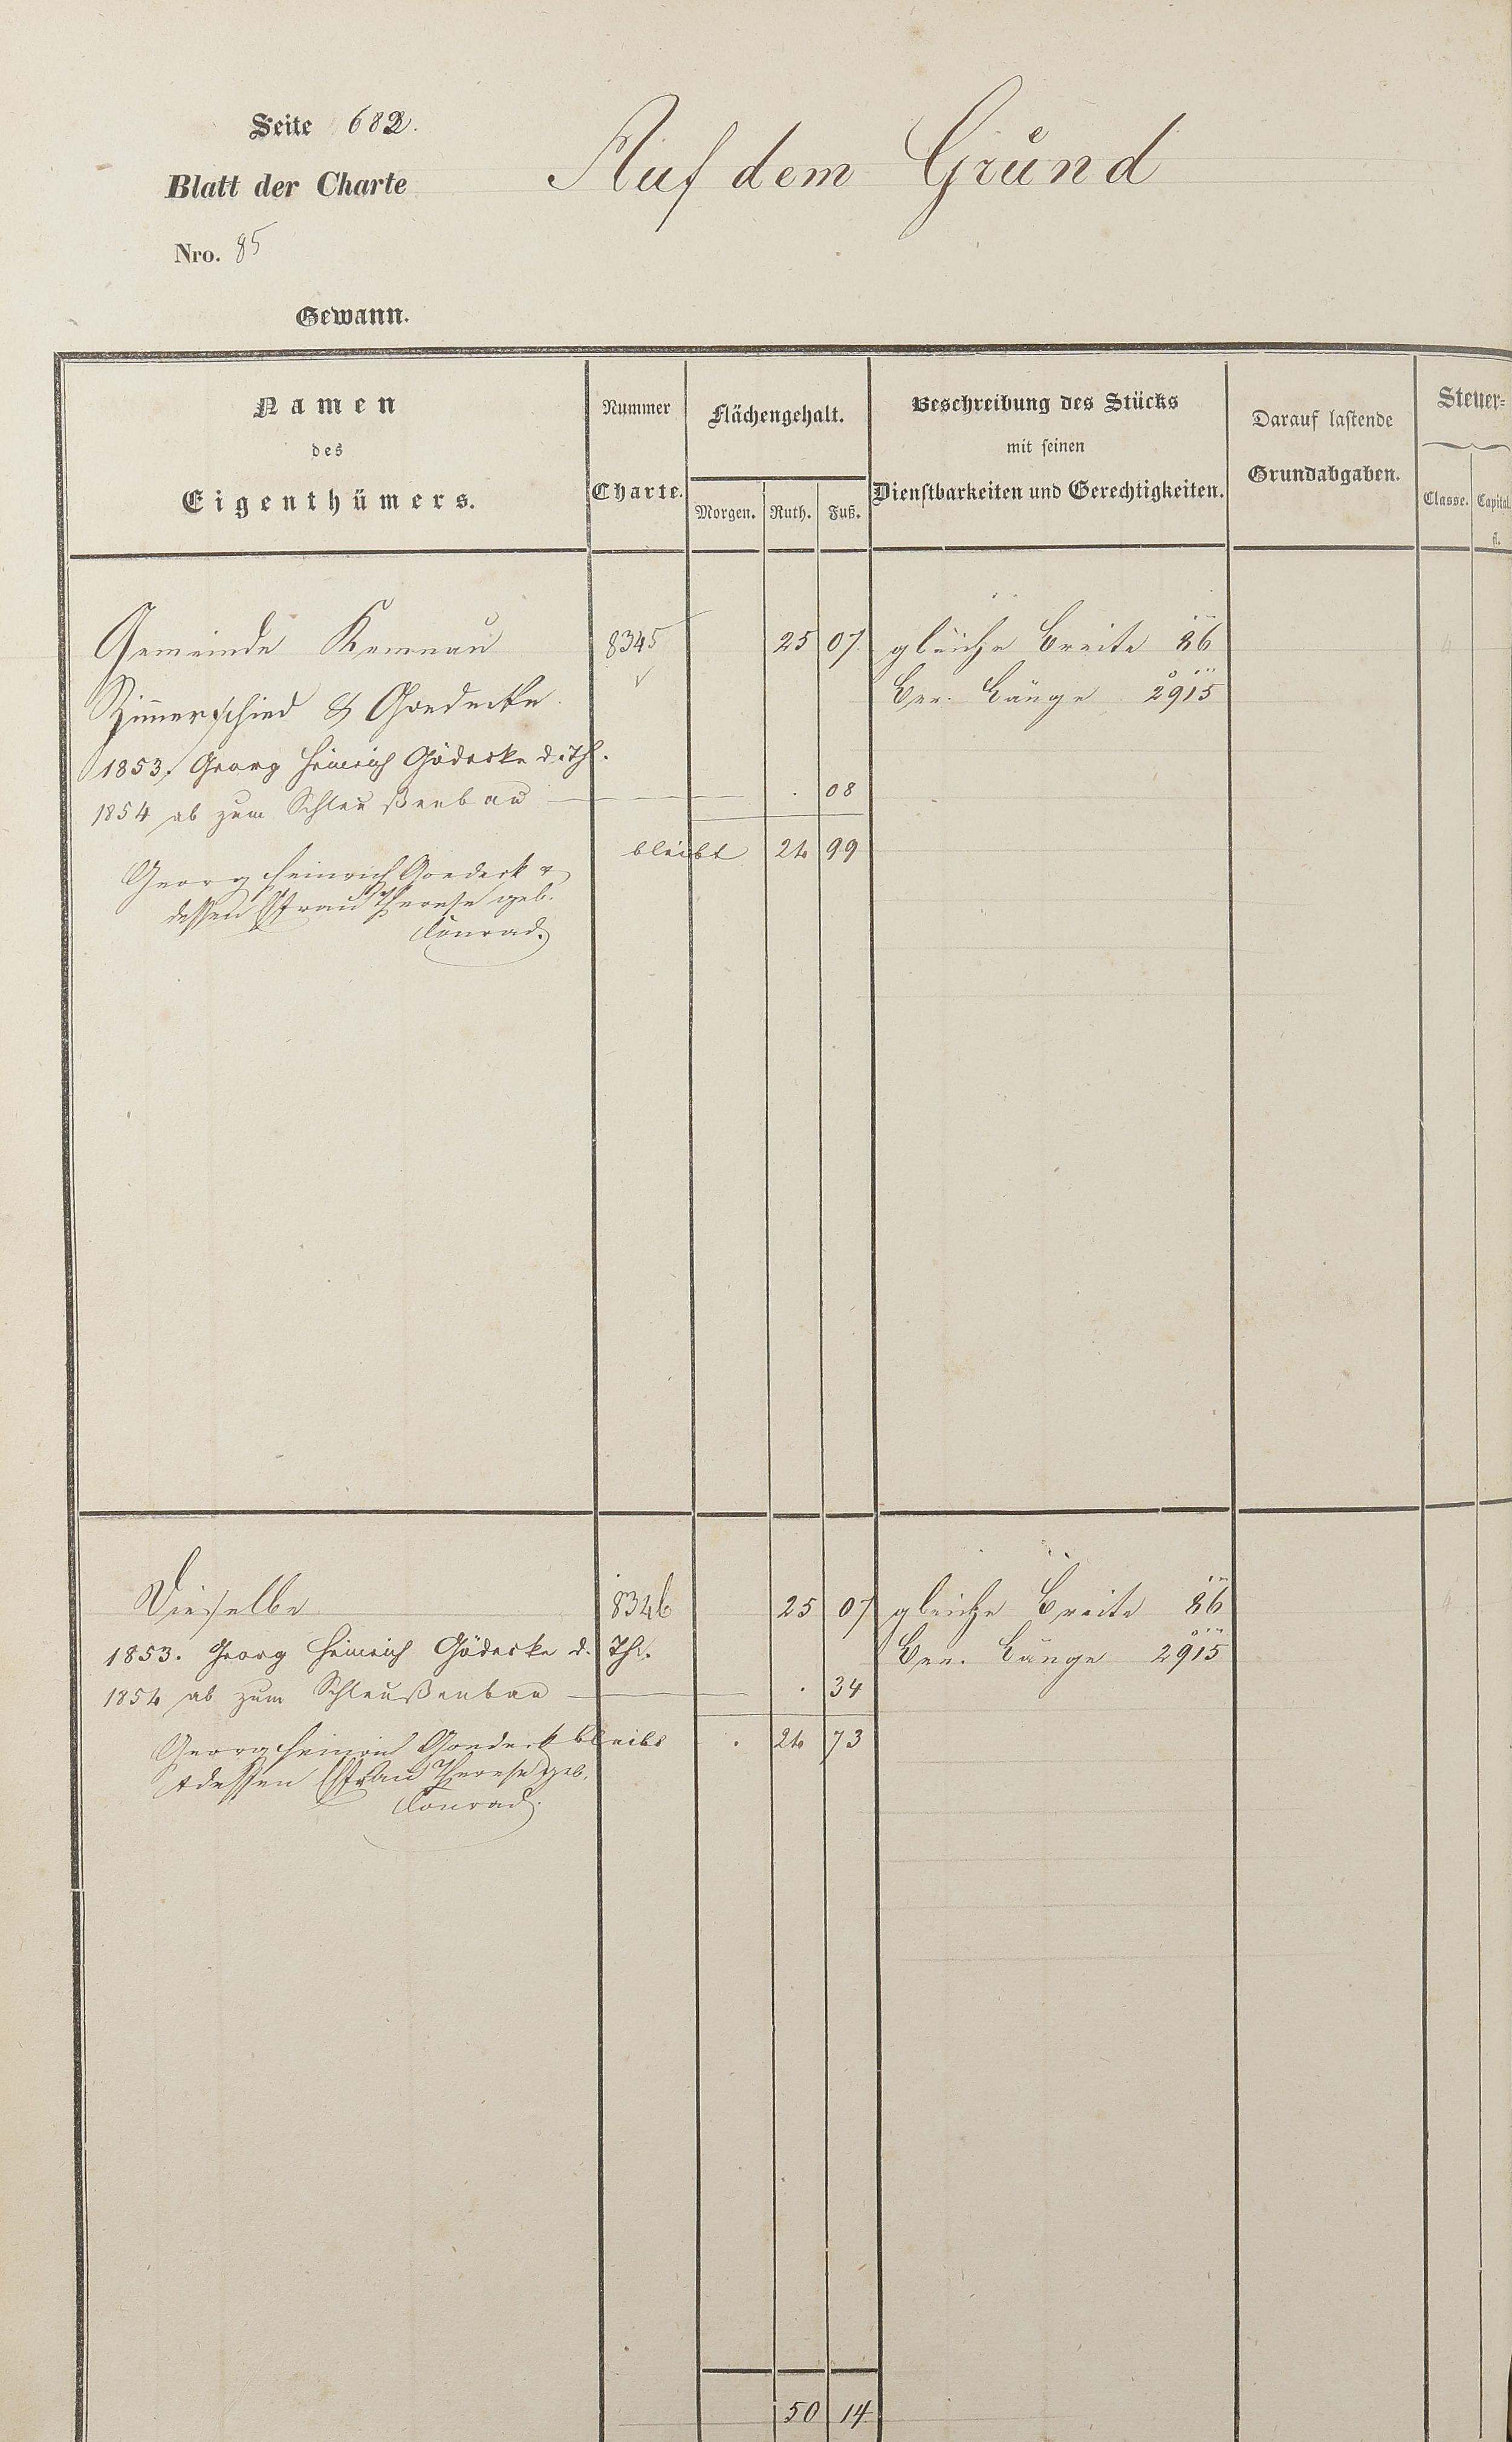 Seite 682.
Blatt der Charte
Auf dem Grund
Nro. 85
Gewann.
Namen
des
Eigenthümers.
Nummer
Charte.
Flächengehalt.
Morgen. Ruth. Fuß.
Beschreibung des Stücks
mit seinen
Dienstbarkeiten und Gerechtigkeiten.
Darauf lastende
Grundabgaben.
Steuer-
Classe. Capital
fl.
Gemeinde Kemnau 8345 25 07 gleiche Breite 86
Zimmerschied & Goedecke Ber. Länge 2915
1853. Georg Heinrich Gödecke d. Th.
1854 ab zum Schleußenbau . 08
bleibt 24 99
Georg Heinrich Goedeck u
dessen Efrau Therese geb.
Conrad.
Dieselbe 8346 25 07 gleiche Breite 86
1853. Georg Heinrich Gödecke d. Th. Ber. Länge 2915
1854 ab zum Schleußenbau . 34
Georg Heinrich Goedeck bleibt . 24 73
u dessen Efrau Therese geb.
Conrad.
50 14